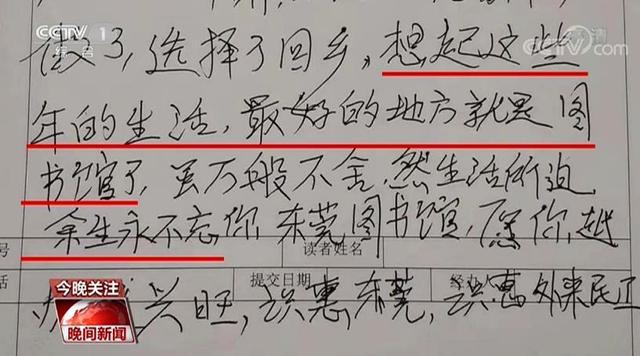 CCTV 1 高清
综合 CCTV.com
做了，选择了回乡，想起这些
年的生活，最好的地方就是图
书馆了，虽万般不舍，然生活所迫
余生永不忘你东莞图书馆，愿你越
号 读者姓名
话 提交日期 经办人
兴旺，识惠东莞，识惠外来民工
今晚关注
晚间新闻